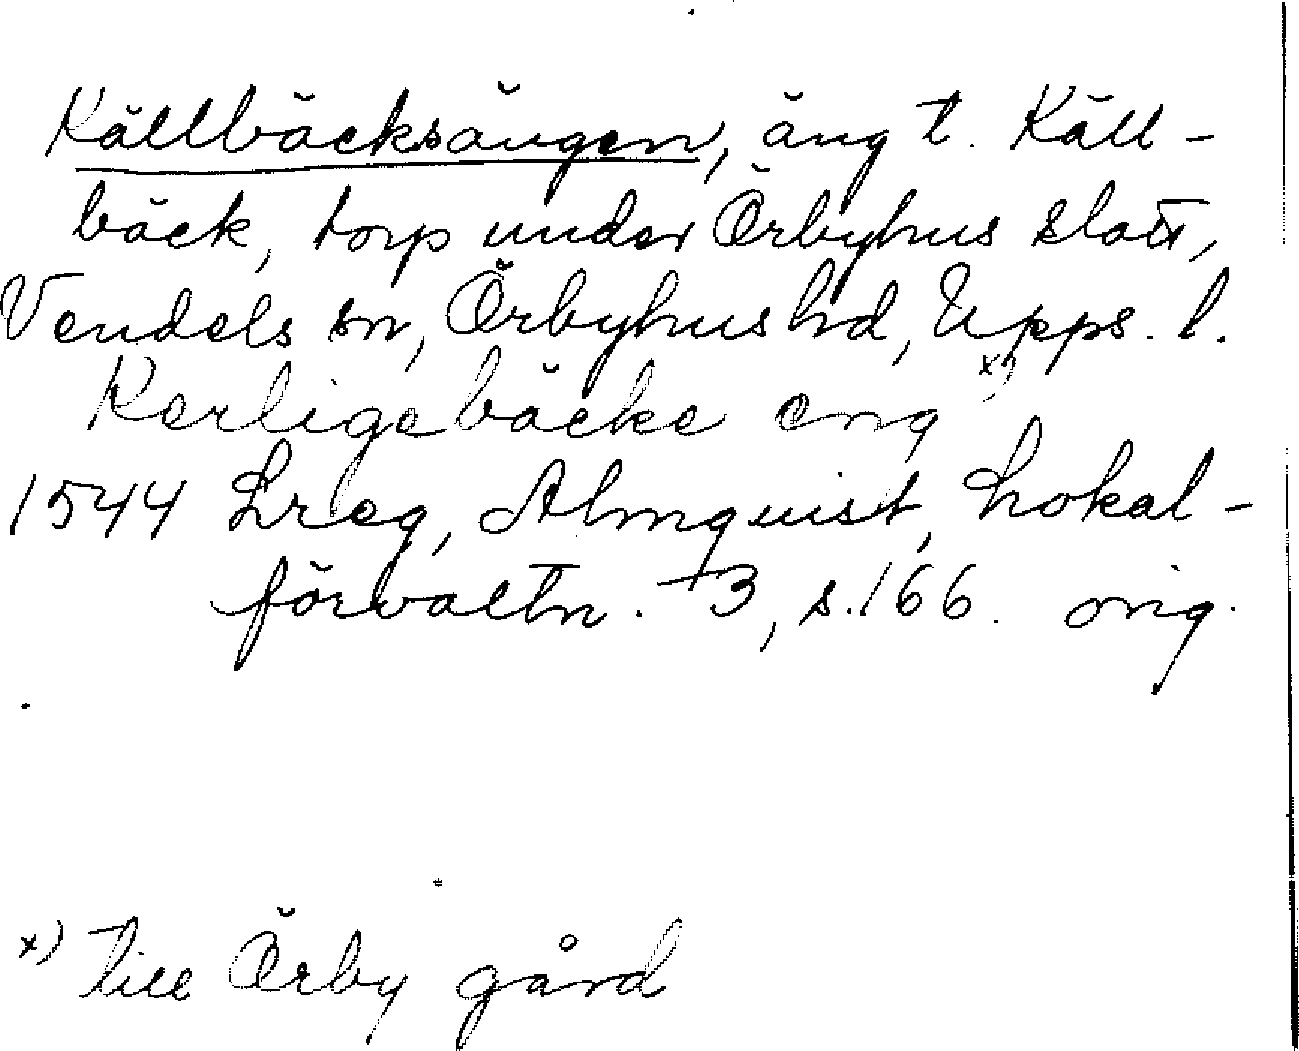 Källbäcksängen, äng t. Käll-
bäck, torp under Örbyhus slott,
Vendels sn, Örbyhus hd, Upps. l.
Kerligebäcke eng x)
1544 Lreg, Almquist, Lokal-
förvaltn. 3, s. 166. orig.
x) till Örby gård